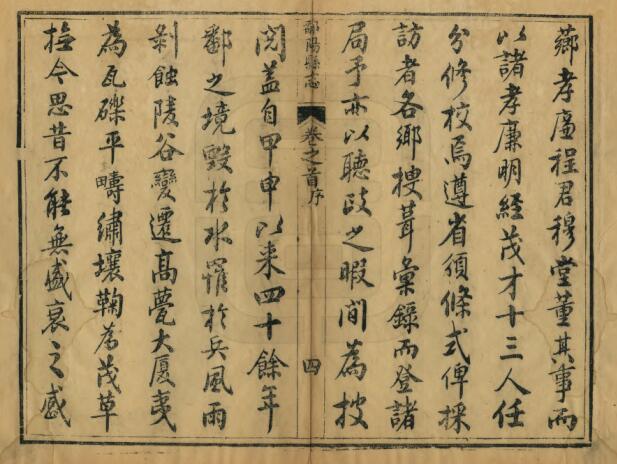 薌孝廉程君穆堂董其事而
以諸孝廉明經茂才十三人任
分修校焉遵省頒條式俾採
訪者各鄉搜葺彙錄而登諸
局予亦以聽政之暇間為披
鄱陽縣志
卷之首序
四
閱蓋自甲申以来四十餘年
鄱之境毀於水罹於兵風雨
剝蝕陵谷變遷高甍大厦夷
為瓦礫平疇繡壤鞠為茂草
撫今思昔不能無盛衰之感